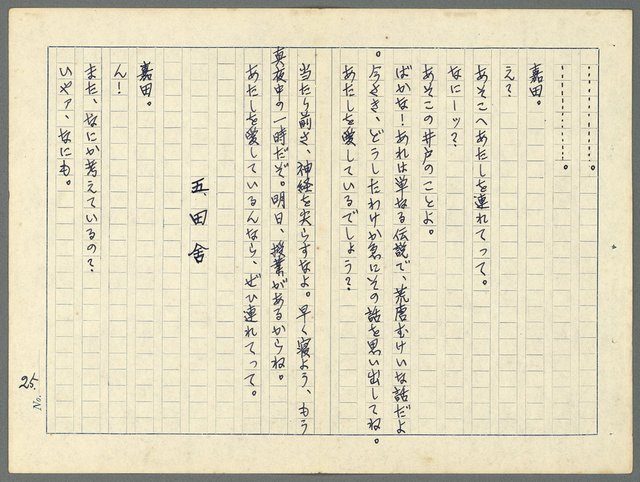 …………。
…………。
嘉田。
え？
あそこへあたしを連れてって。
なにーッ？
あそこの井戸のことよ。
ばかな！あれは単なる伝説で、荒唐むけいな話だよ
。今さき、どうしたわけか急にその話を思い出してね。
あたしを愛しているでしょう？
当たり前さ、神経を尖らすなよ。早く寝よう、もう
真夜中の一時だぞ。明日、授業があるからね。
あたしを愛しているんなら、ぜひ連れてって。
五、田舎
嘉田。
ん！
また、なにか考えているの？
いやァ、なにも。
No. 25.